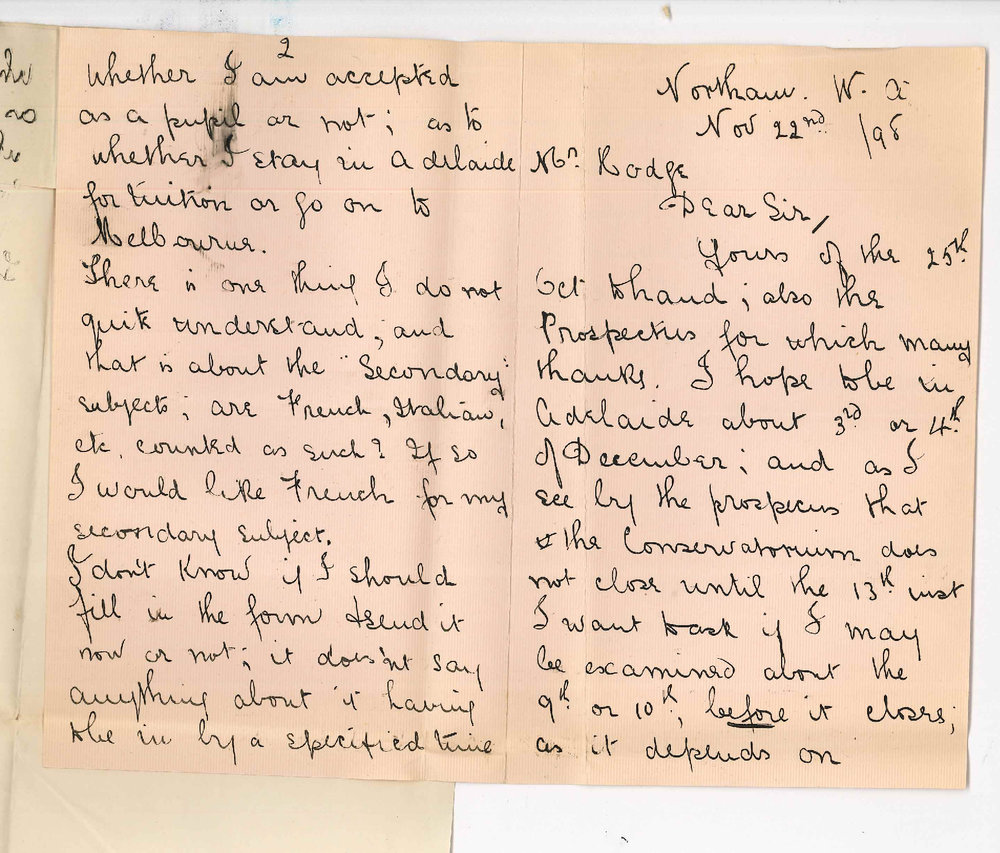 Northam. W. A
Nov 22nd /98
Mr. Hodge
Dear Sir,
Yours of the 25th
Oct to hand; also the
Prospectus for which many
thanks. I hope to be in
Adelaide about 3rd or 4th
of December; and as I
see by the prospecus that
the Conservatorium does
not close until the 13th inst
I want to ask if I may
be examined about the
9th or 10th, before it closes;
as it depends on
2
whether I am accepted
as a pupil or not; as to
whether I stay in Adelaide
for tuition or go on to
Melbourne.
There is one thing I do not
quite understand, and
that is about the "Secondary"
subjects; are French, Italian,
etc. counted as such? If so
I would like French for my
secondary subject.
I don't know if I should
fill in the form & send it
now or not; it does'nt say
anything about it having
to be in by a specified time